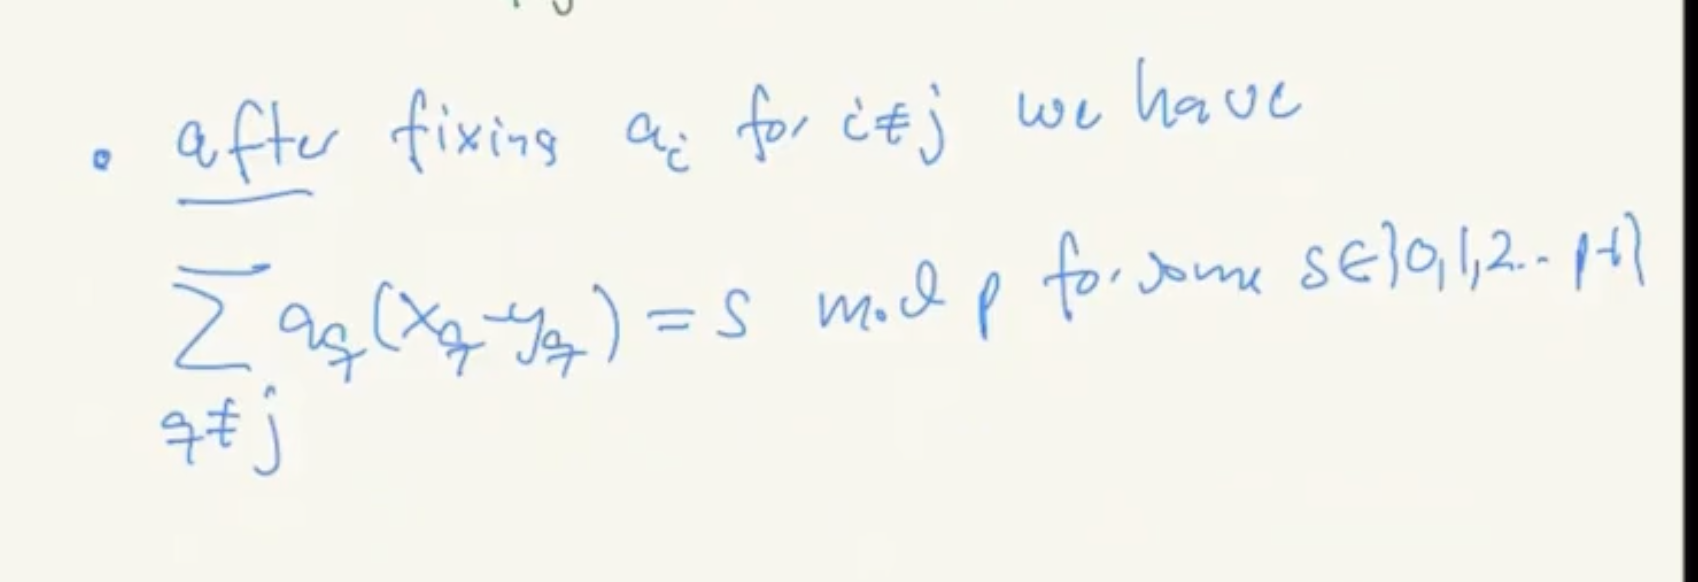 • after fixing aᵢ for i≠j we have
∑ a_q (x_q - y_q) = s mod p for some s∈{0,1,2.. p-1}
q≠j